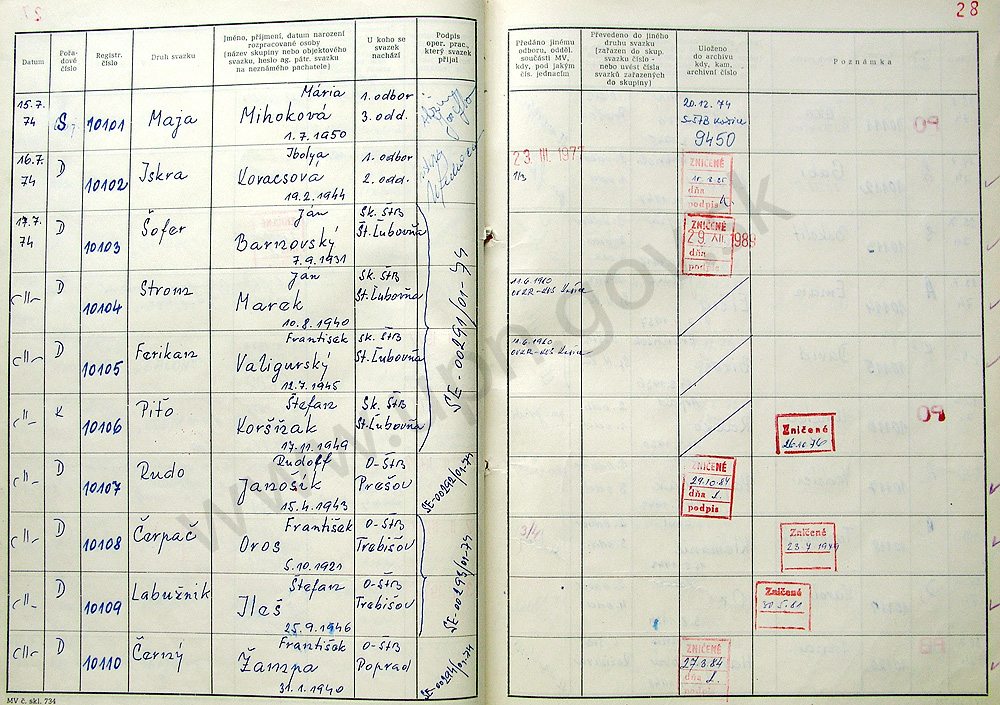 28
Datum
Pořadové číslo
Registr. číslo
Druh svazku
Jméno, příjmení, datum narození rozpracované osoby (název skupiny nebo objektového svazku, heslo ag. pátr. svazku na neznámého pachatele)
U koho se svazek nachází
Podpis oper. prac., který svazek přijal
Předáno jinému odboru, odděl. součásti MV, kdy, pod jakým čís. jednacím
Převedeno do jiného druhu svazku (zařazen do skup. svazku číslo - nebo uvést čísla svazků zařazených do skupiny)
Uloženo do archivu kdy, kam, archivní číslo
Poznámka
15.7. 74
S
10101
Maja
Mária
Mihoková
1.7.1950
1. odbor
3. odd.
20.12.74
S-ŠTB Košice
9450
16.7. 74
D
10102
Iskra
Ibolya
Kovacsová
19.2.1944
1. odbor
2. odd.
23 III. 1977
ZNIČENÉ
dňa
podpis
17.7. 74
D
10103
Šofer
Ján
Barnovský
7.9.1931
Sk. ŠtB
Št. Ľubovňa
SE-00291/01-74
ZNIČENÉ
29. XII. 1989
dňa
podpis
-||-
D
10104
Strom
Ján
Marek
10.8.1940
Sk. ŠtB
St. Ľubovňa
11.6.1980
-||-
D
10105
Ferikan
František
Valigurský
12.7.1945
sk. ŠtB
St. Ľubovňa
11.6.1980
-||-
K
10106
Piťo
Štefan
Koršňak
17.11.1949
Sk. ŠtB
St. Ľubovňa
Zničené
26.10.76
-||-
D
10107
Rudo
Rudolf
Janošík
15.4.1943
O-ŠtB
Prešov
SE-00292/01-74
ZNIČENÉ
29.10.84
dňa
podpis
-||-
D
10108
Čerpač
František
Oros
5.10.1921
O-ŠtB
Trebišov
SE-00293/01-74
3/4
Zničené
-||-
D
10109
Labužnik
Štefan
Ileš
25.9.1946
O-ŠtB
Trebišov
Zničené
-||-
D
10110
Černý
František
Žampa
31.1.1940
O-ŠtB
Poprad
ZNIČENÉ
27.3.84
dňa
podpis
MV č. skl. 734
www.upn.gov.sk